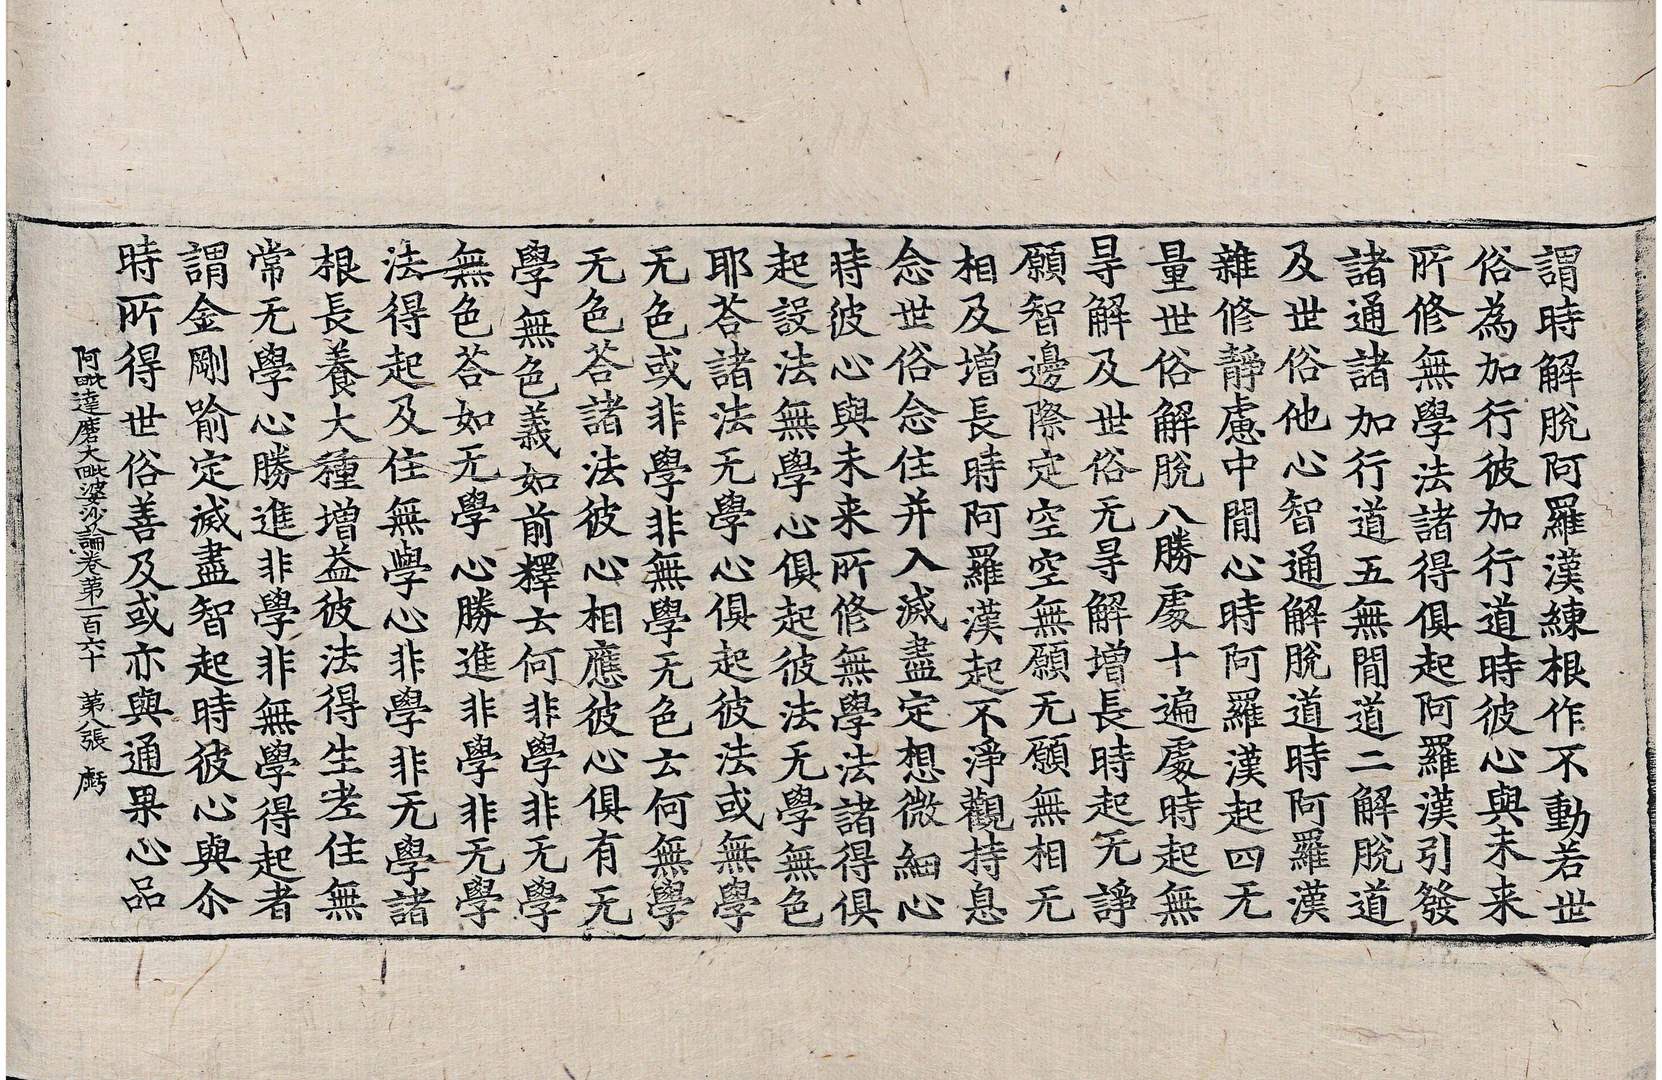 謂時解脫阿羅漢練根作不動若世
俗為加行彼加行道時彼心與未来
所修無學法諸得俱起阿羅漢引發
諸通諸加行道五無間道二解脫道
及世俗他心智通解脫道時阿羅漢
雜修靜慮中間心時阿羅漢起四无
量世俗解脫八勝處十遍處時起無
㝵解及世俗无㝵解增長時起无諍
願智邊際定空空無願无願無相无
相及增長時阿羅漢起不淨觀持息
念世俗念住并入滅盡定想微細心
時彼心與未来所修無學法諸得俱
起設法無學心俱起彼法无學無色
耶荅諸法无學心俱起彼法或無學
无色或非學非無學无色云何無學
无色荅諸法彼心相應彼心俱有无
學無色義如前釋云何非學非无學
無色荅如无學心勝進非學非无學
法得起及住無學心非學非无學諸
根長養大種增益彼法得生老住無
常无學心勝進非學非無學得起者
謂金剛喻定滅盡智起時彼心與尒
時所得世俗善及或亦與通果心品
阿毗達磨大毗婆沙論卷第一百六十　第八張　虧